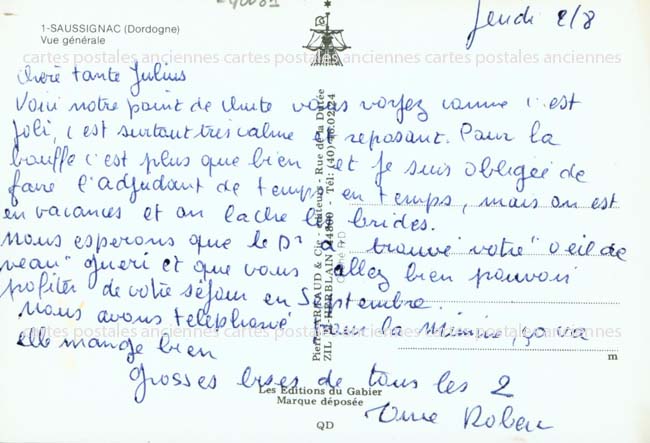 1-SAUSSIGNAC (Dordogne)
Vue générale
Jeudi 2/8
cartes postales anciennes cartes postales anciennes cartes postales anciennes
chère tante Julius
Voici notre point de chute vous voyez comme c'est
joli, c'est surtout très calme et reposant. Pour la
bouffe c'est plus que bien et je suis obligée de
faire l'adjudant de temps en temps, mais on est
en vacances et on lache les brides.
nous esperons que le Dr a trouvé votre "oeil de
veau" gueri et que vous allez bien pouvoir
profiter de votre séjour en Septembre.
Nous avons téléphoné pour la Mimine, ça va
cartes postales anciennes cartes postales anciennes cartes postales anciennes
elle mange bien
grosses bises de tous les 2
Pierre ARTAUD & Cie - éditeurs - Rue de la Dutée
ZIL ST-HERBLAIN 44800 - Tél: (40)
m
Les Editions du Gabier
Marque déposée
QD